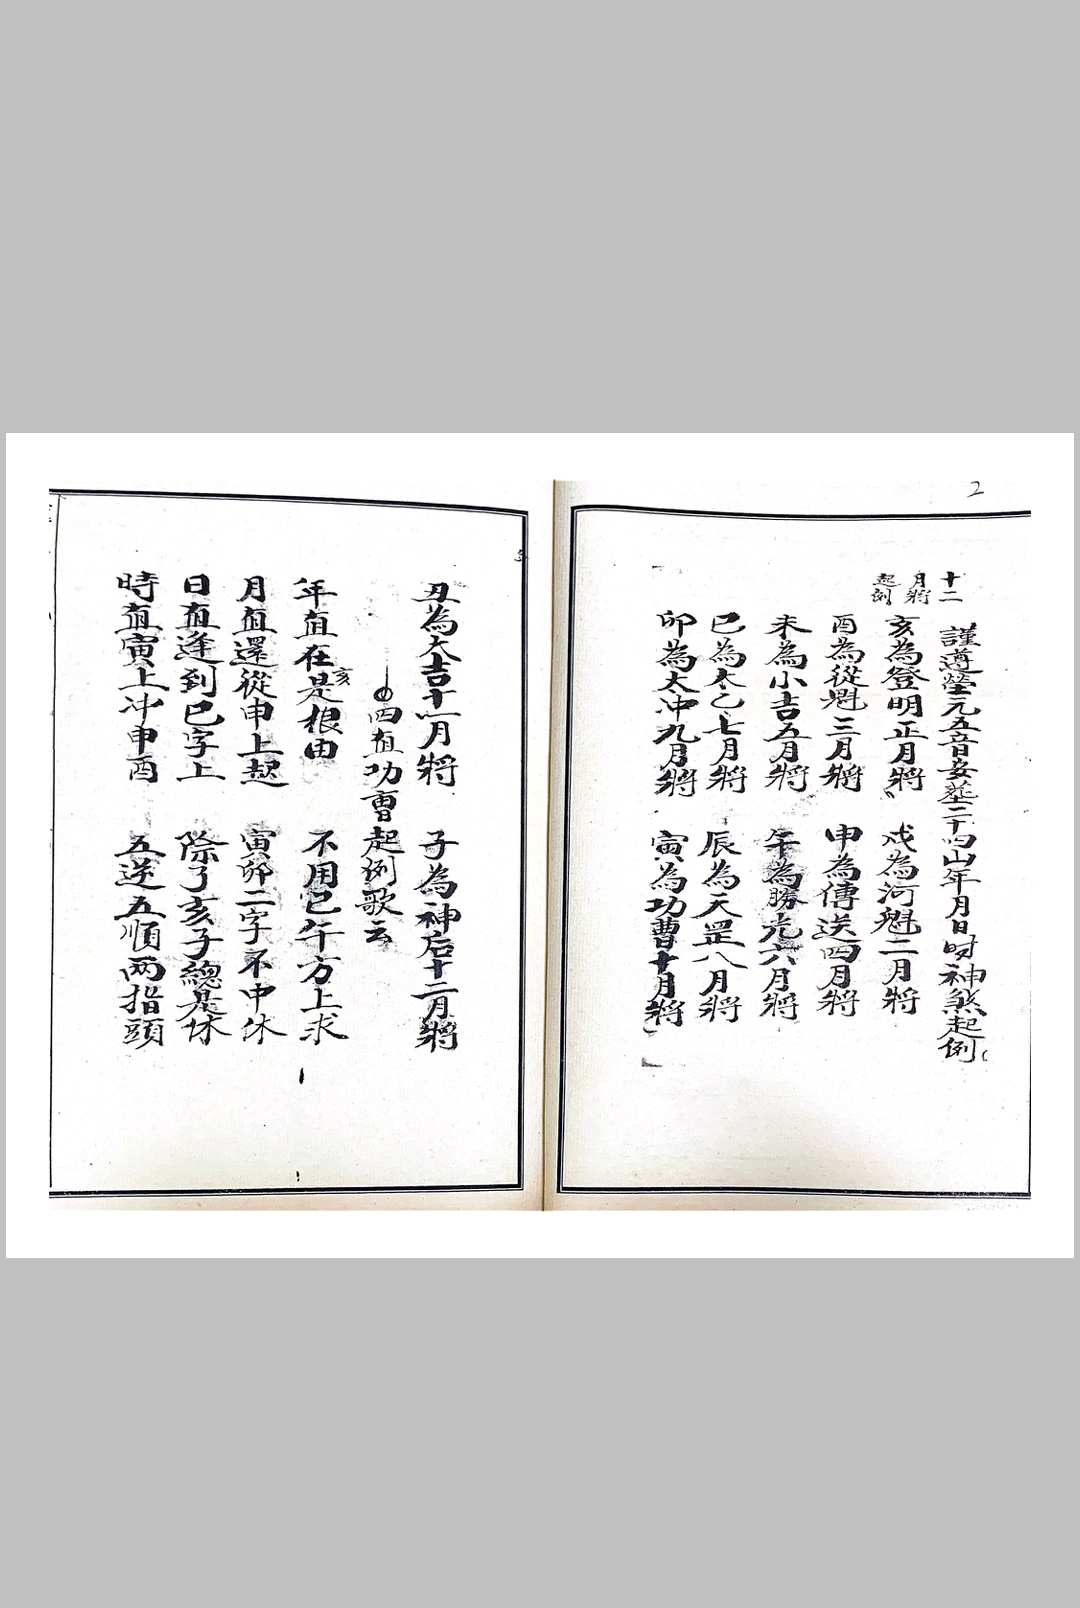 2
十二
月將
起例
謹遵塋元五音安塟二十四山年月日时神煞起例
亥為登明正月將 戍為河魁二月將
酉為從魁三月將 申為傳送四月將
未為小吉五月將 午為勝光六月將
巳為太乙七月將 辰為天罡八月將
卯為太冲九月將 寅為功曹十月將
丑為大吉十一月將 子為神后十二月將
四值功曹起例歌云
年值在是根由 不用巳午方上求
亥
月值還從申上起 寅卯二字不中休
日值逢到巳字上 除了亥子總是休
時值寅上冲申酉 五逆五順两指頭